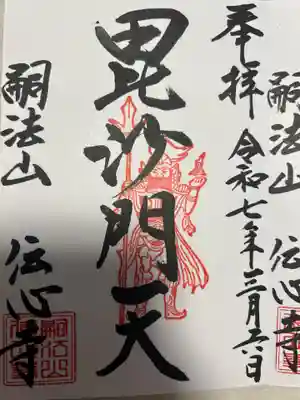 奉拝 令和七年三月六日
毘沙門天
嗣法山 伝心寺
嗣法山 伝心寺